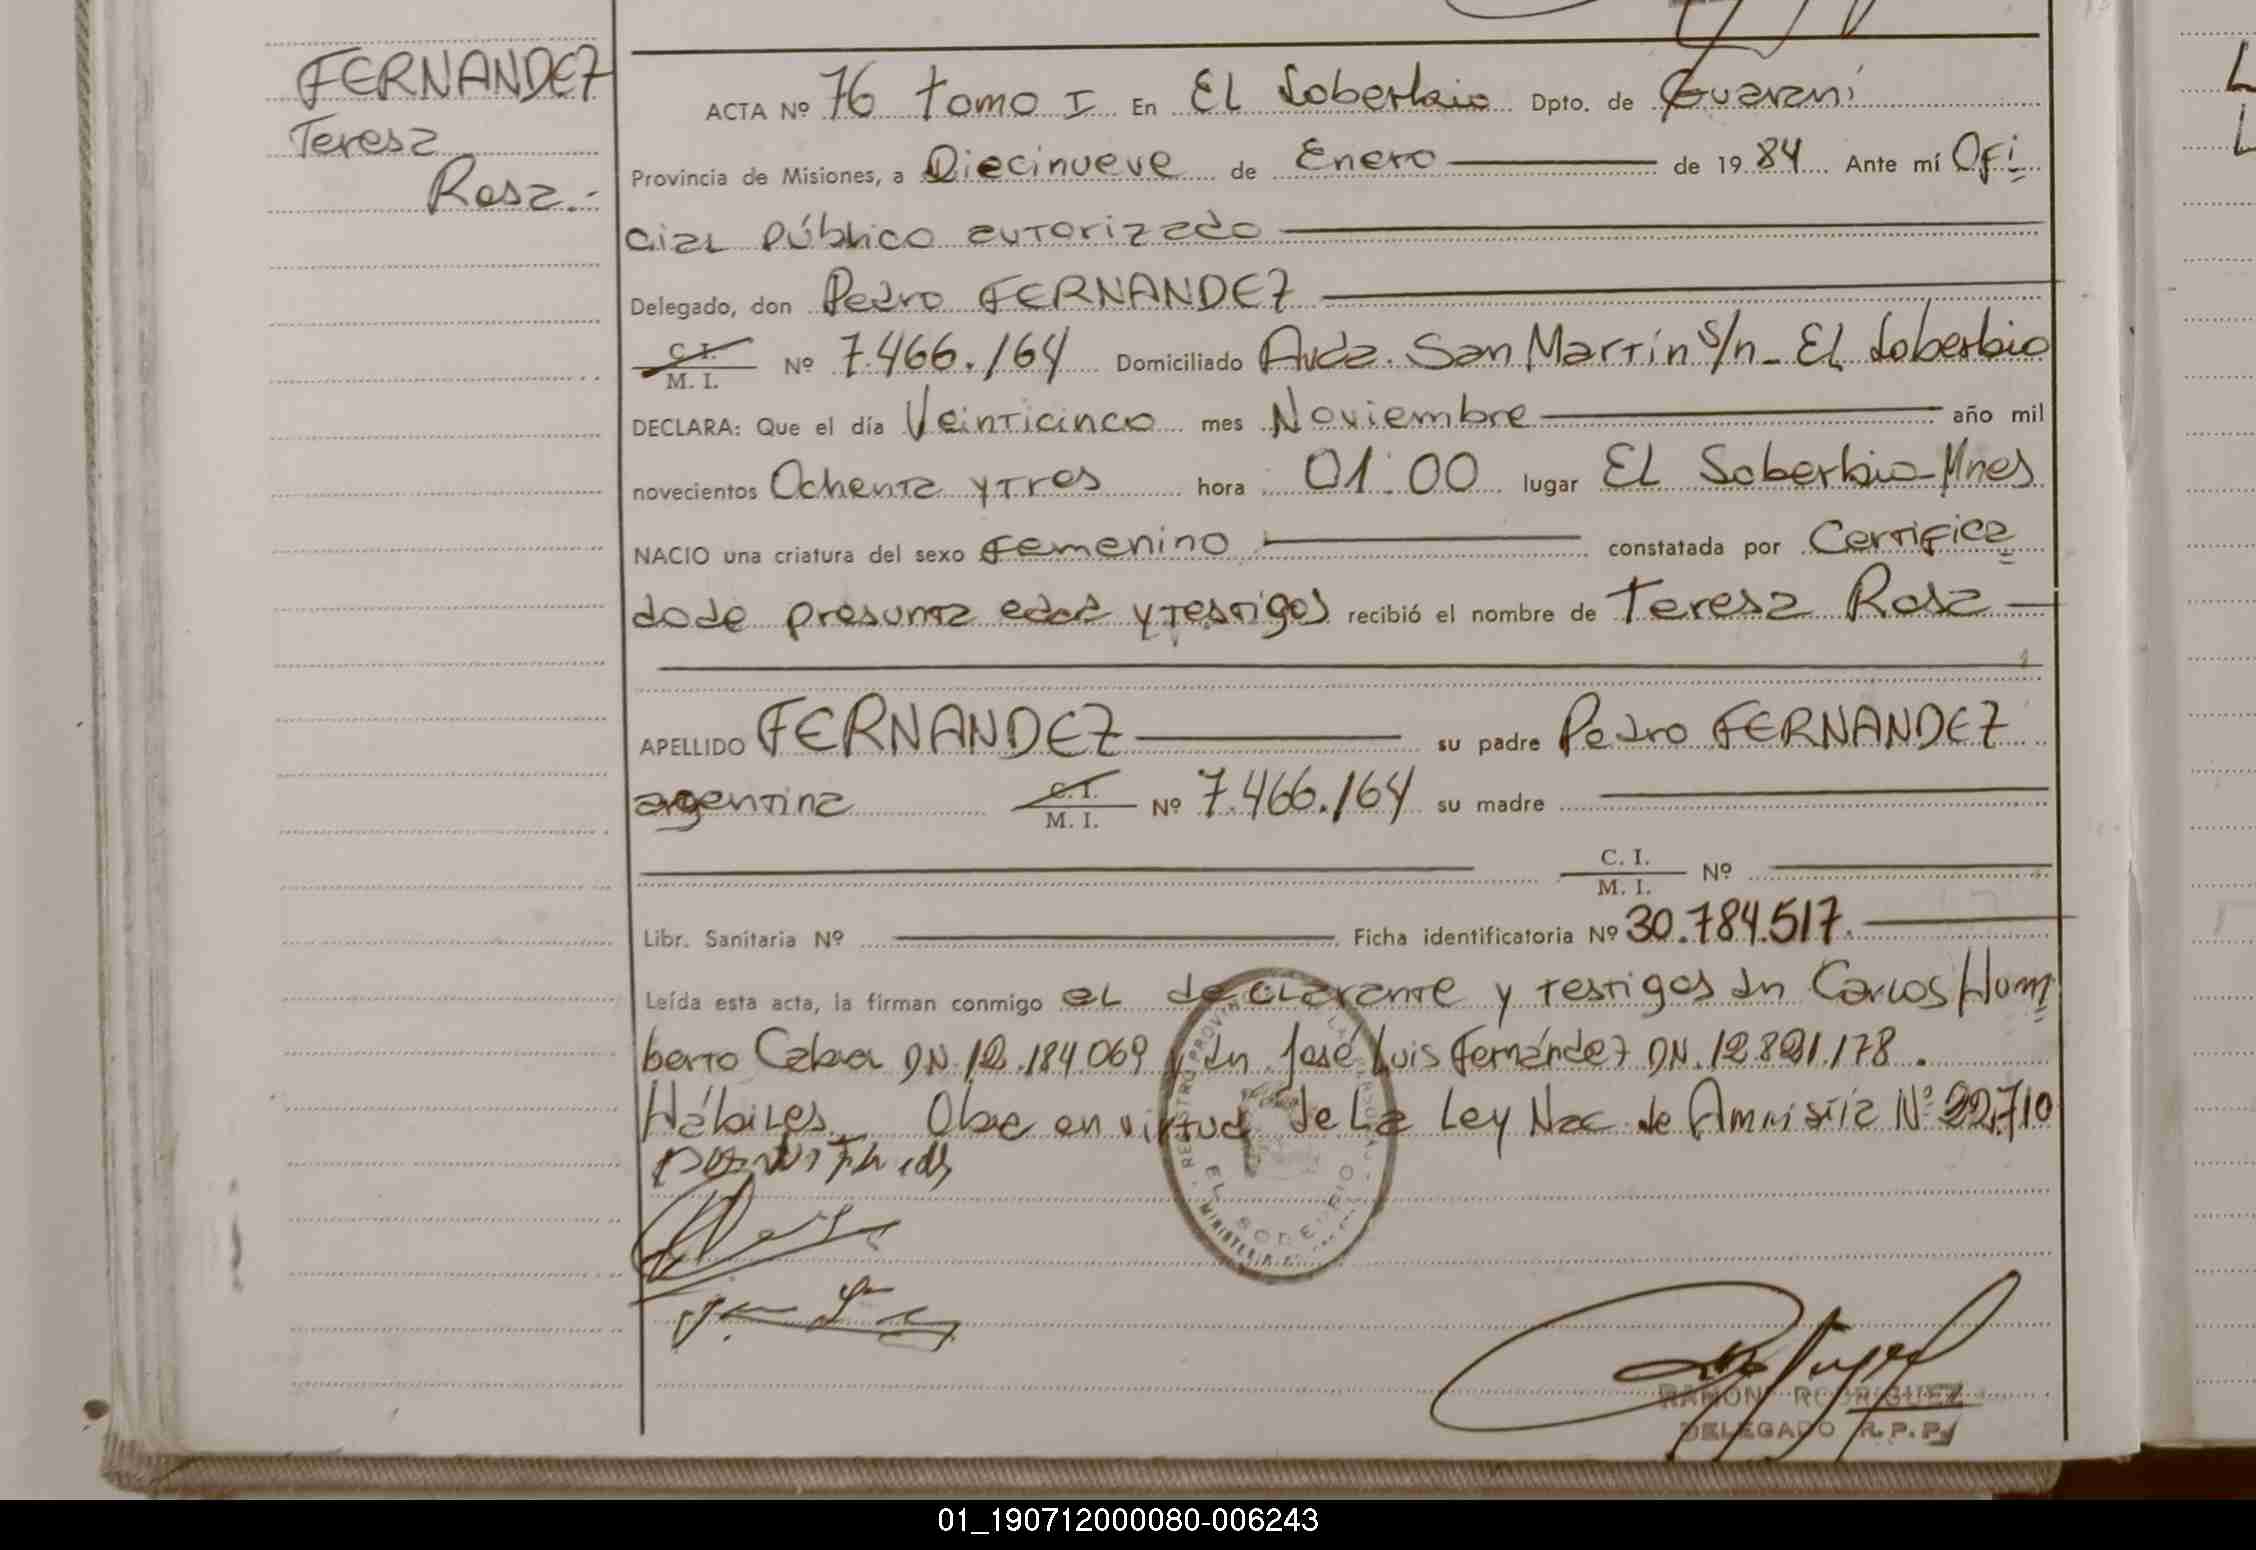 FERNANDEZ
Teresa
Rosa.-
ACTA Nº 76 tomo I En EL Soberbio Dpto. de Guaraní
Provincia de Misiones, a Diecinueve de Enero de 19 84 Ante mí Ofi
cial público autorizado
Delegado, don Pedro FERNANDEZ
C. I. / M. I. Nº 7.466.164 Domiciliado Avda. San Martín s/n - EL Soberbio
DECLARA: Que el día Veinticinco mes Noviembre año mil
novecientos Ochenta y Tres hora 01:00 lugar EL Soberbio-Mnes
NACIO una criatura del sexo Femenino constatada por Certifica
do de presunta edad y testigos recibió el nombre de Teresa Rosa
APELLIDO FERNANDEZ su padre Pedro FERNANDEZ
argentina C. I. / M. I. Nº 7.466.164 su madre
C. I. / M. I. Nº
Libr. Sanitaria Nº Ficha identificatoria Nº 30.784.517.
Leída esta acta, la firman conmigo el declarante y testigos dn Carlos Hum
berto DN. 12.184.069 y dn José Luis Fernández DN. 12.821.178.
Hábiles. Obre en virtud de La Ley Nac. de Amnistía Nº 22.710
REGISTRO PROVIN
EL SOBERBIO
MINISTERIO
RAMON RODRIGUEZ
DELEGADO R.P.P.
01_190712000080-006243